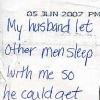 05 JUN 2007 PM
My husband let
other men sleep
with me so
he could get